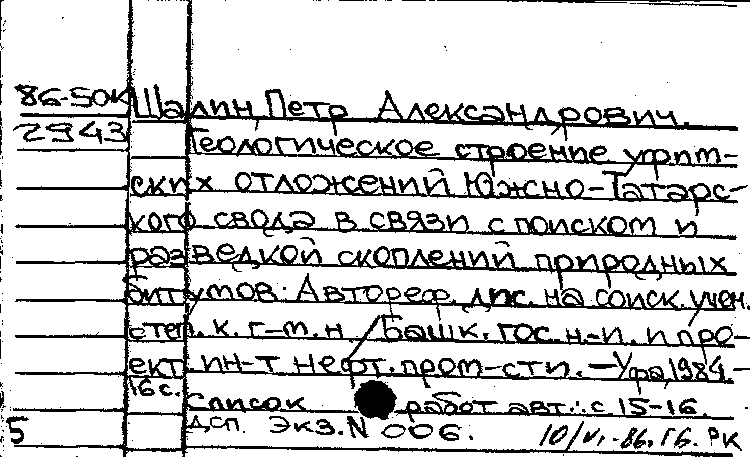 86-50к Шалин, Петр Александрович.
2943 Геологическое строение уфим-
ских отложений Южно-Татарс-
кого свода в связи с поиском и
разведкой скоплений природных
битумов: Автореф. дис. на соиск. учен.
степ. к. г-м. н. / Башк. гос. н-и. и про-
ект. ин-т нефт. пром-сти. - Уфа, 1984. -
16 с.
Список работ авт.: с 15-16.
5 ДСП. Экз. N 006. 10/VI-86. ГБ. РК